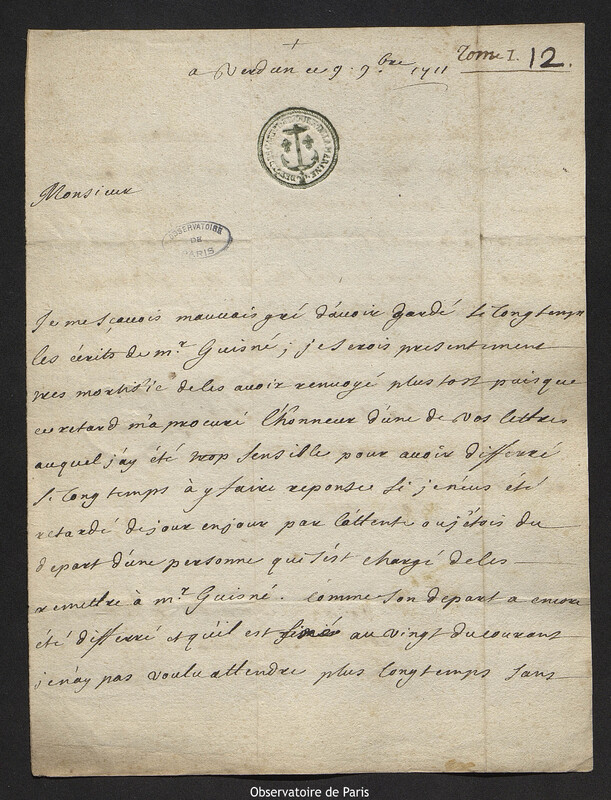 +
a Verdun ce 9. 9bre 1711
Tome I. 12.
Monsieur
OBSERVATOIRE
DE
PARIS
Je me sçavois mauvais gré d'avoir gardé si longtemps
les écrits de mr Guisné; je serois presentement
tres mortifié de les avoir renvoyé plus tost puisque
ce retard m'a procuré l'honneur d'une de vos lettres
auquel j'ay été trop sensible pour avoir differré
si long temps à y faire reponse si je n'eus été
retardé de jour en jour par l'attente ou j'étois du
depart d'une personne qui s'est chargé de les
remettre à mr Guisné. Comme son depart a encore
été differré et qu'il est au vingt du courant
je n'ay pas voulu attendre plus longtemps sans
Observatoire de Paris